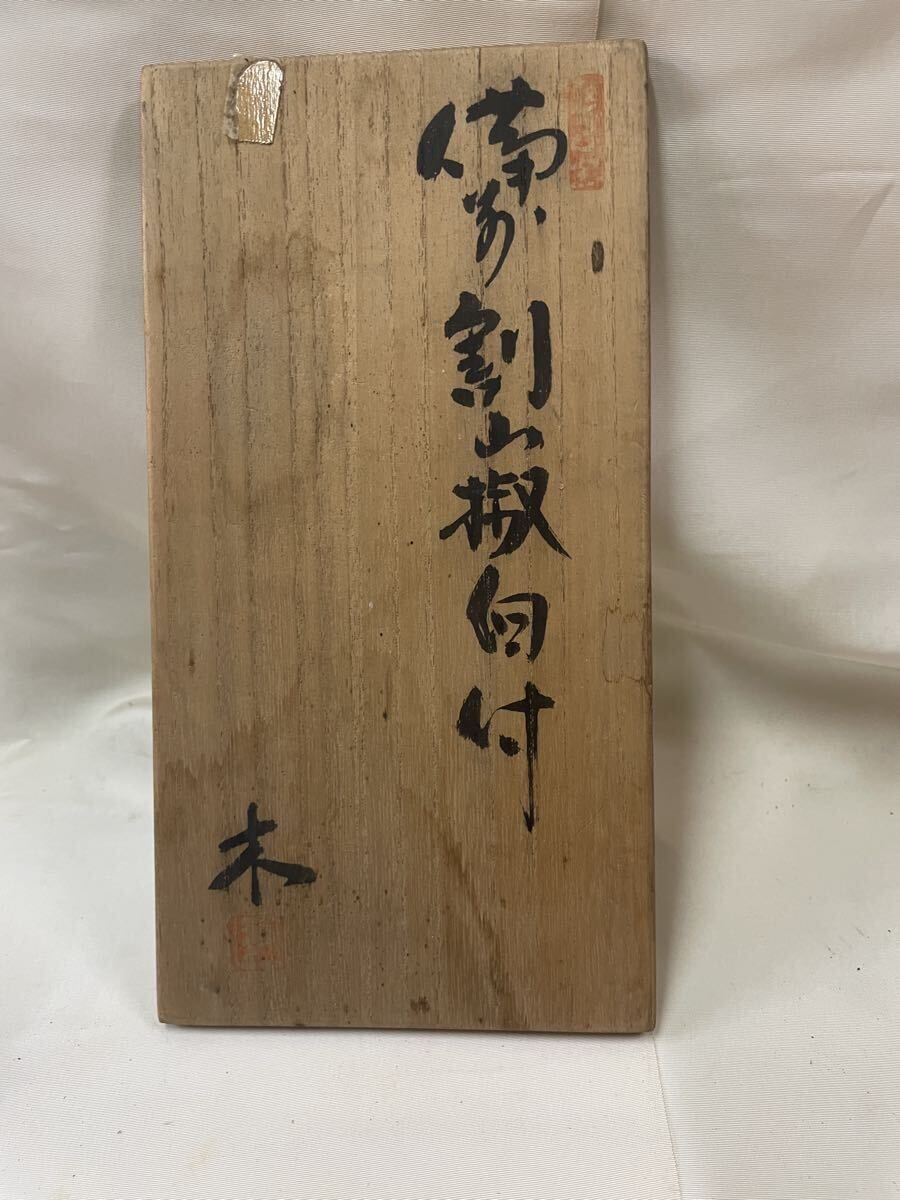 備前割山椒向付
末